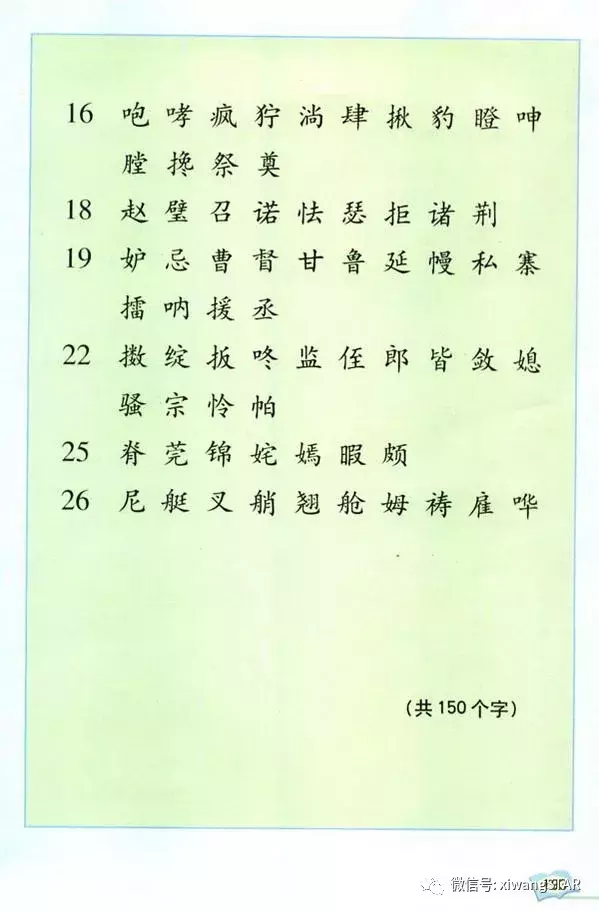 16 咆 哮 疯 狞 淌 肆 揪 豹 瞪 呻
膛 搀 祭 奠
18 赵 璧 召 诺 怯 瑟 拒 诸 荆
19 妒 忌 曹 督 甘 鲁 延 幔 私 寨
擂 呐 援 丞
22 擞 绽 扳 咚 监 侄 郎 皆 敛 媳
骚 宗 怜 帕
25 脊 莞 锦 姹 嫣 暇 颇
26 尼 艇 叉 艄 翘 舱 姆 祷 雇 哗
(共150个字)
微信号: xiwang